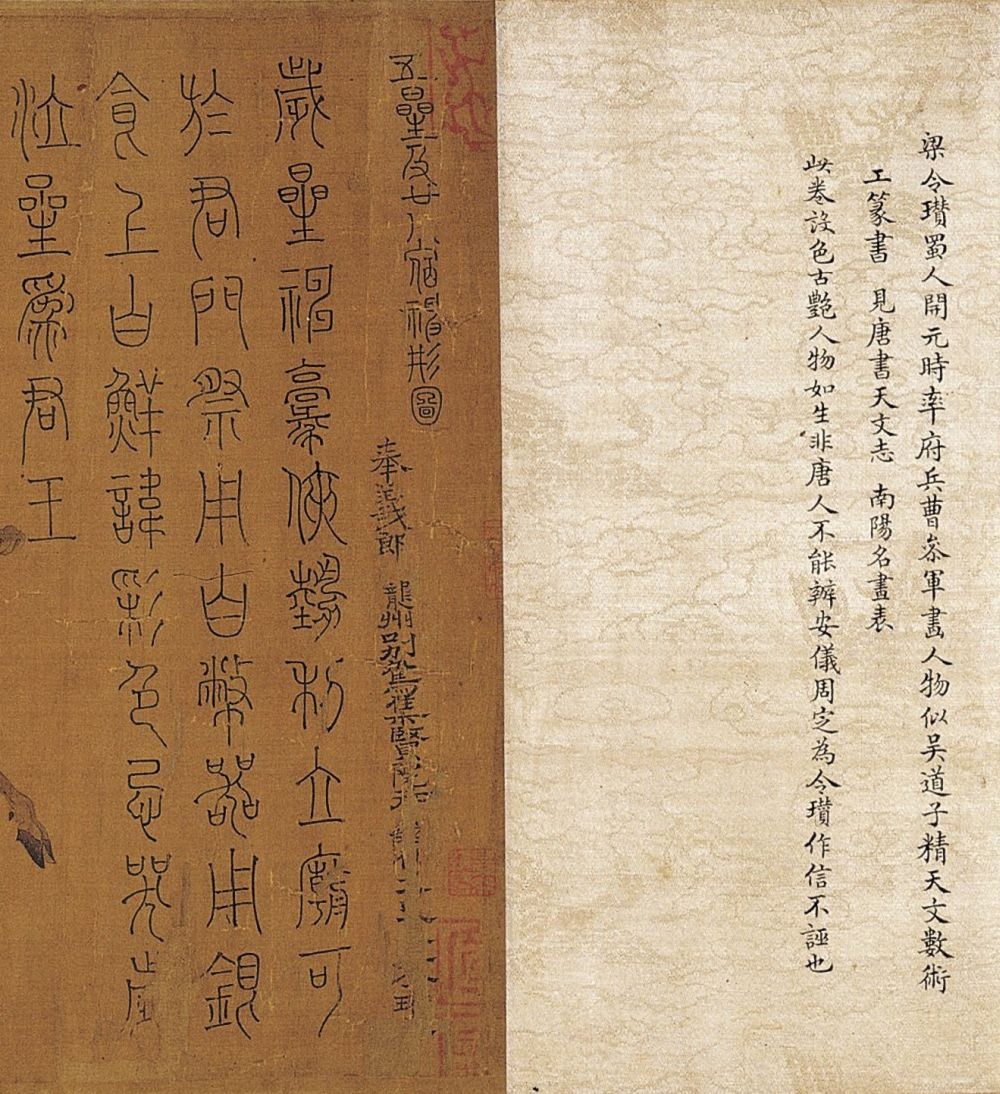 梁令瓚蜀人開元時率府兵曹叅軍畫人物似吴道子精天文數術
工篆書 見唐書天文志 南陽名畫表
此卷設色古艷人物如生非唐人不能辦安儀周定為令瓚作信不誣也
五星及廿八宿神形圖
奉義郎 龍州別駕集賢院
歲星神豪俠勢利立廟可
於君門祭用白幣器用銀
食上白鮮諱彩色忌哭
星為君王